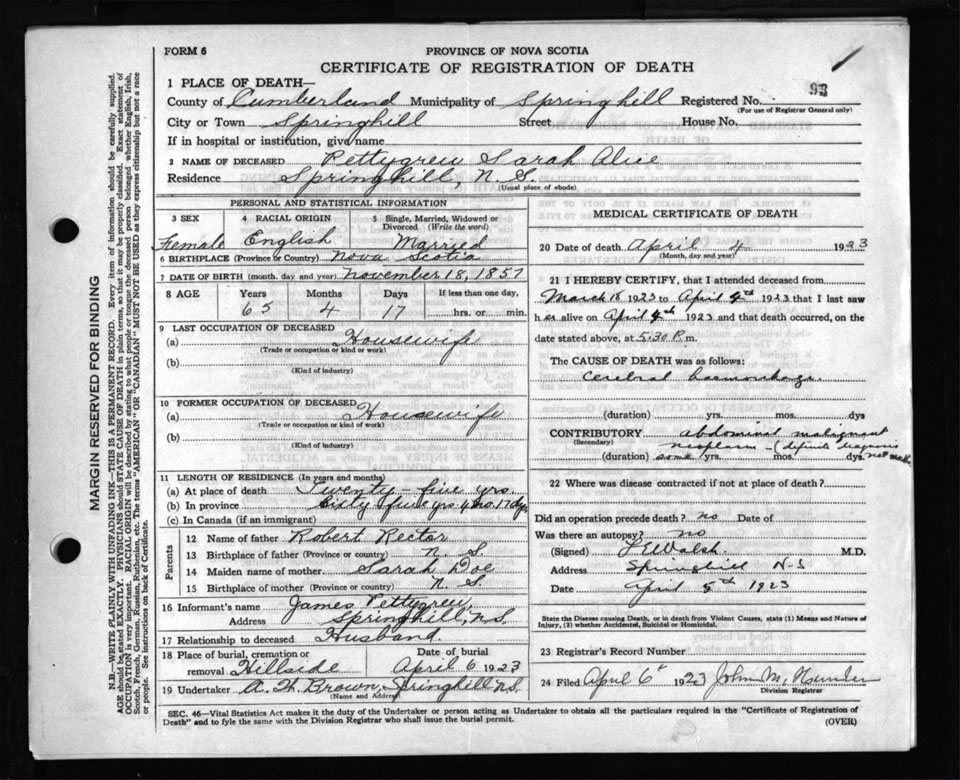 FORM 6
PROVINCE OF NOVA SCOTIA
CERTIFICATE OF REGISTRATION OF DEATH
93
1 PLACE OF DEATH—
County of Cumberland Municipality of Springhill Registered No.
(For use of Registrar General only)
City or Town Springhill Street House No.
If in hospital or institution, give name
2 NAME OF DECEASED Pettygrew Sarah Alice
Residence Springhill, N. S.
(Usual place of abode)
PERSONAL AND STATISTICAL INFORMATION
3 SEX 4 RACIAL ORIGIN 5 Single, Married, Widowed or Divorced (Write the word)
Female English Married
6 BIRTHPLACE (Province or Country) Nova Scotia
7 DATE OF BIRTH (month, day and year) November 18, 1857
8 AGE Years Months Days If less than one day,
65 4 17 hrs. or min.
9 LAST OCCUPATION OF DECEASED
(a) Housewife
(Trade or occupation or kind or work)
(b)
(Kind of industry)
10 FORMER OCCUPATION OF DECEASED
(a) Housewife
(Trade or occupation or kind of work)
(b)
(Kind of industry)
11 LENGTH OF RESIDENCE (In years and months)
(a) At place of death Twenty five yrs.
(b) In province Sixty five yrs. 4 mo. 17 dys
(c) In Canada (if an immigrant)
Parents
12 Name of father Robert Rector
13 Birthplace of father (Province or country) N. S.
14 Maiden name of mother Sarah Doe
15 Birthplace of mother (Province or country) N. S.
16 Informant's name James Pettygrew
Address Springhill, N.S.
17 Relationship to deceased Husband.
18 Place of burial, cremation or removal Hillside Date of burial April 6 1923
19 Undertaker A. H. Brown, Springhill N.S.
(Name and Address)
MEDICAL CERTIFICATE OF DEATH
20 Date of death April 4 1923
(Month, day and year)
21 I HEREBY CERTIFY, that I attended deceased from
March 18 1923 to April 4th 1923 that I last saw
her alive on April 4th 1923 and that death occurred, on the
date stated above, at 5:30 P. m.
The CAUSE OF DEATH was as follows:
Cerebral haemorrhage.
(duration) yrs. mos. dys
CONTRIBUTORY abdominal malignant
(Secondary) neoplasm — (definite diagnosis
(duration) some yrs. mos. dys. not made
22 Where was disease contracted if not at place of death?
Did an operation precede death? no Date of
Was there an autopsy? no
(Signed) Walsh M.D.
Address Springhill N-S
Date April 5th 1923
State the Disease causing Death, or in death from Violent Causes, state (1) Means and Nature of Injury, (2) whether Accidental, Suicidal or Homicidal.
23 Registrar's Record Number
24 Filed April 6th 1923 John M.
Division Registrar
SEC. 46—Vital Statistics Act makes it the duty of the Undertaker or person acting as Undertaker to obtain all the particulars required in the "Certificate of Registration of
Death" and to fyle the same with the Division Registrar who shall issue the burial permit.
(OVER)
MARGIN RESERVED FOR BINDING
N.B.—WRITE PLAINLY WITH UNFADING INK—THIS IS A PERMANENT RECORD. Every item of information should be carefully supplied.
AGE should be stated EXACTLY. PHYSICIANS should STATE CAUSE OF DEATH in plain terms, so that it may be properly classified. Exact statement of
OCCUPATION is very important. RACIAL ORIGIN will be described by stating to what people or tongue the deceased person belonged whether English, Irish,
Scotch, French, German, Russian, Ruthenian, etc. The terms "AMERICAN" OR "CANADIAN" MUST NOT BE USED as they express citizenship but not a race
or people. See instructions on back of Certificate.